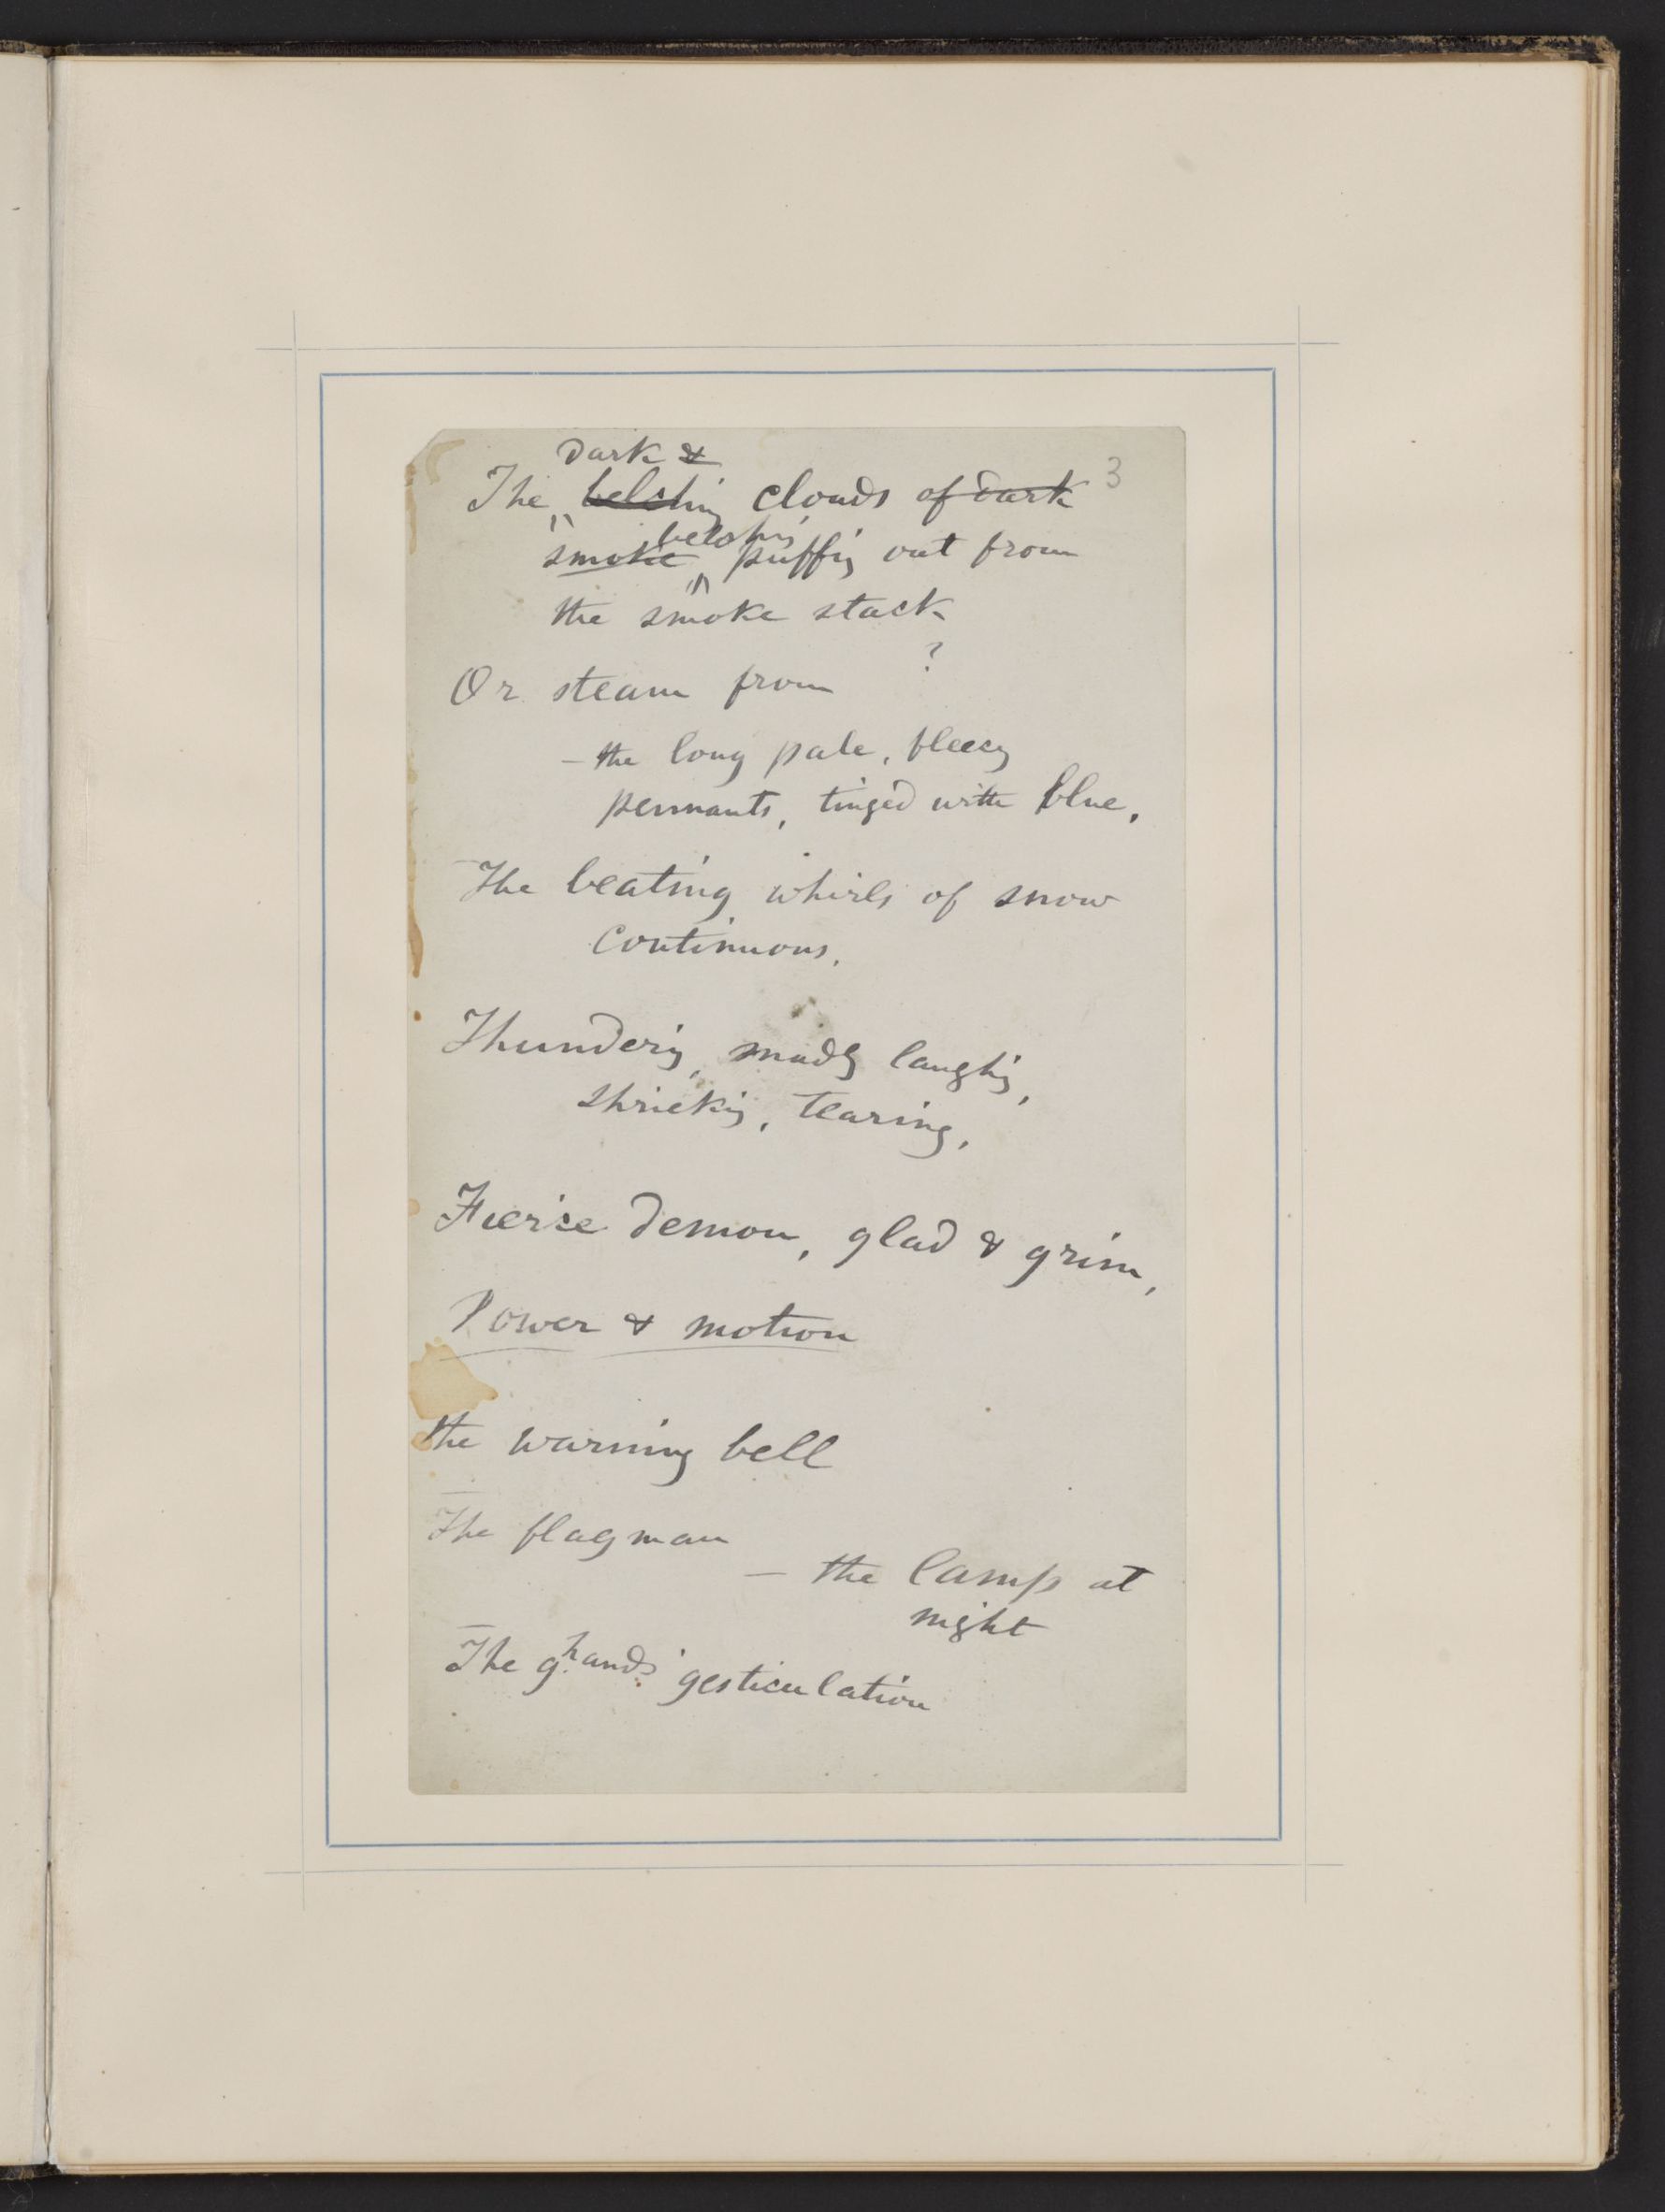 Dark &
The belching clouds of dark 3
belching
smoke puffing out from
the smoke stack
?
Or steam from
– the long pale, fleecy
pennants, tinged with blue,
The beating whirls of snow
continuous,
Thundering, madly laughing,
shrieking, tearing,
Fierce demon, glad & grim,
Power & motion
the warning bell
The flagman
– the lamp at
night
The hands' gesticulation